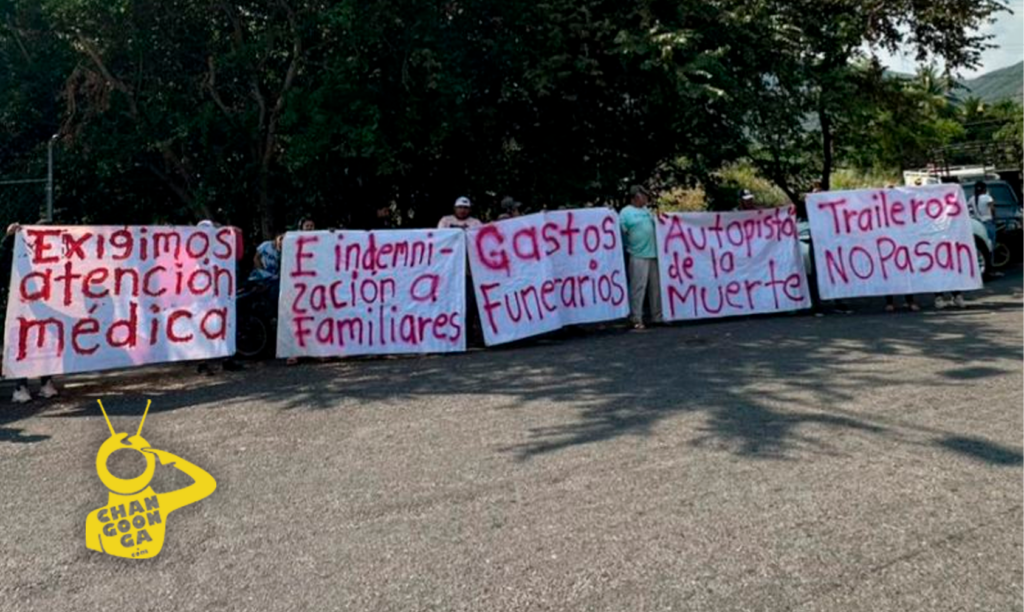 Exigimos
atención
médica
E indemni-
zación a
Familiares
Gastos
Funerarios
"Autopista
de la
Muerte
Traileros
NO Pasan
CHAN
GOON
GA
.com